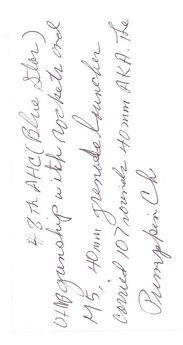 48th AHC (Blue Star)
gunship with rockets and
M5, 40mm grenade launcher
carried 107 rounds 40mm AKA. The